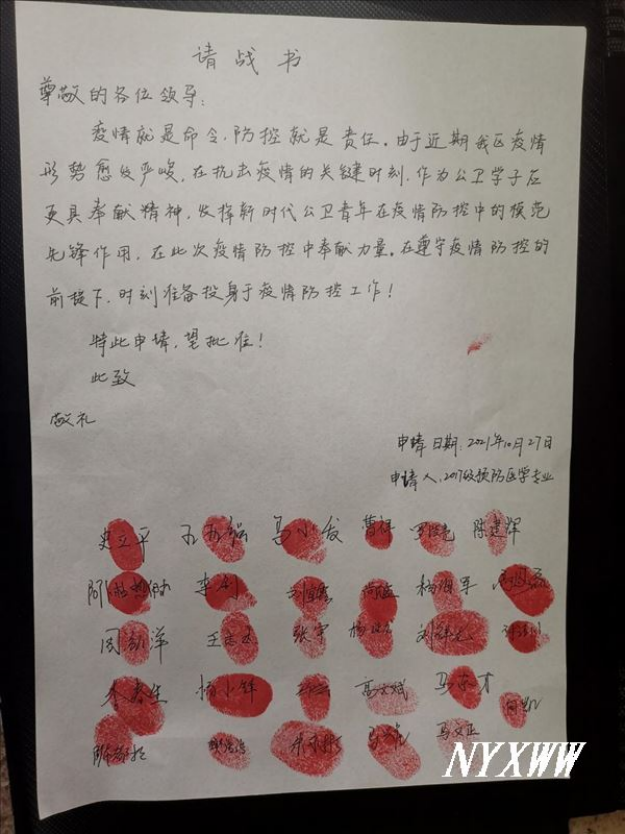 请战书
尊敬的各位领导:
疫情就是命令,防控就是责任。由于近期我区疫情
形势愈发严峻,在抗击疫情的关键时刻,作为公卫学子应
更具奉献精神,发挥新时代公卫青年在疫情防控中的模范
先锋作用,在此次疫情防控中奉献力量。在遵守疫情防控的
前提下,时刻准备投身于疫情防控工作!
特此申请,望批准!
此致
敬礼
申请日期:2021年10月27日
申请人:2017级预防医学专业
史立平 马小发 曹祥 陈建辉
李刚 杨海军
周新洋 张宇
杨小锋
马文正
NYXWW